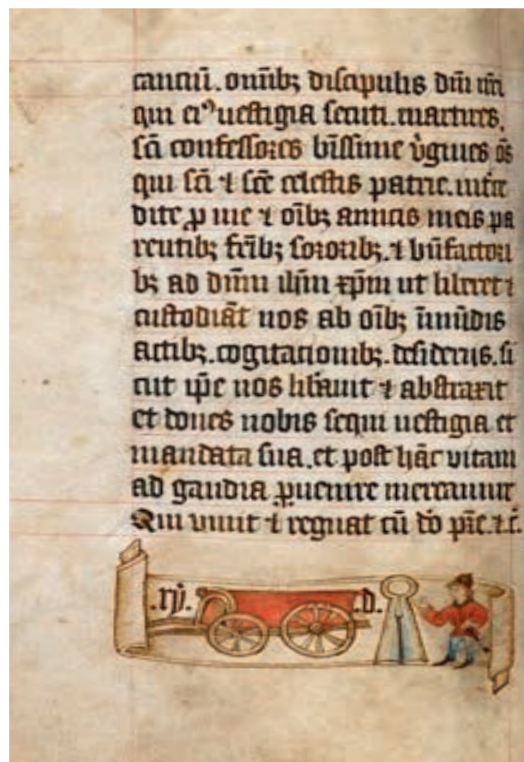 cauciũ. omĩbꝫ discipulis dñi nr̃i
qui ei⁹ uestigia secuti. martires.
sc̃i confessores bt̃issime ũgines os̃
qui sc̃i ⁊ sc̃e celestis patrie. inter̃
dite ꝓ me ⁊ oĩbꝫ amicis meis pa
rentibꝫ fr̃ibꝫ sororibꝫ. ⁊ bñfactori
bꝫ ad dñm ih̃m xp̃m ut liberet ⁊
custodiãt nos ab oĩbꝫ ĩmũdis
actibꝫ. cogitacionibꝫ. desideriis. si
cut ip̃e nos lib̃auit ⁊ abstraxit
et donet nobis sequi uestigia et
mandata sua. et post hãc uitam
ad gaudia ꝑuenire mereamur
Qui uiuit ⁊ regnat cũ dõ pr̃e. ⁊ c̃.
.rÿ. .d.